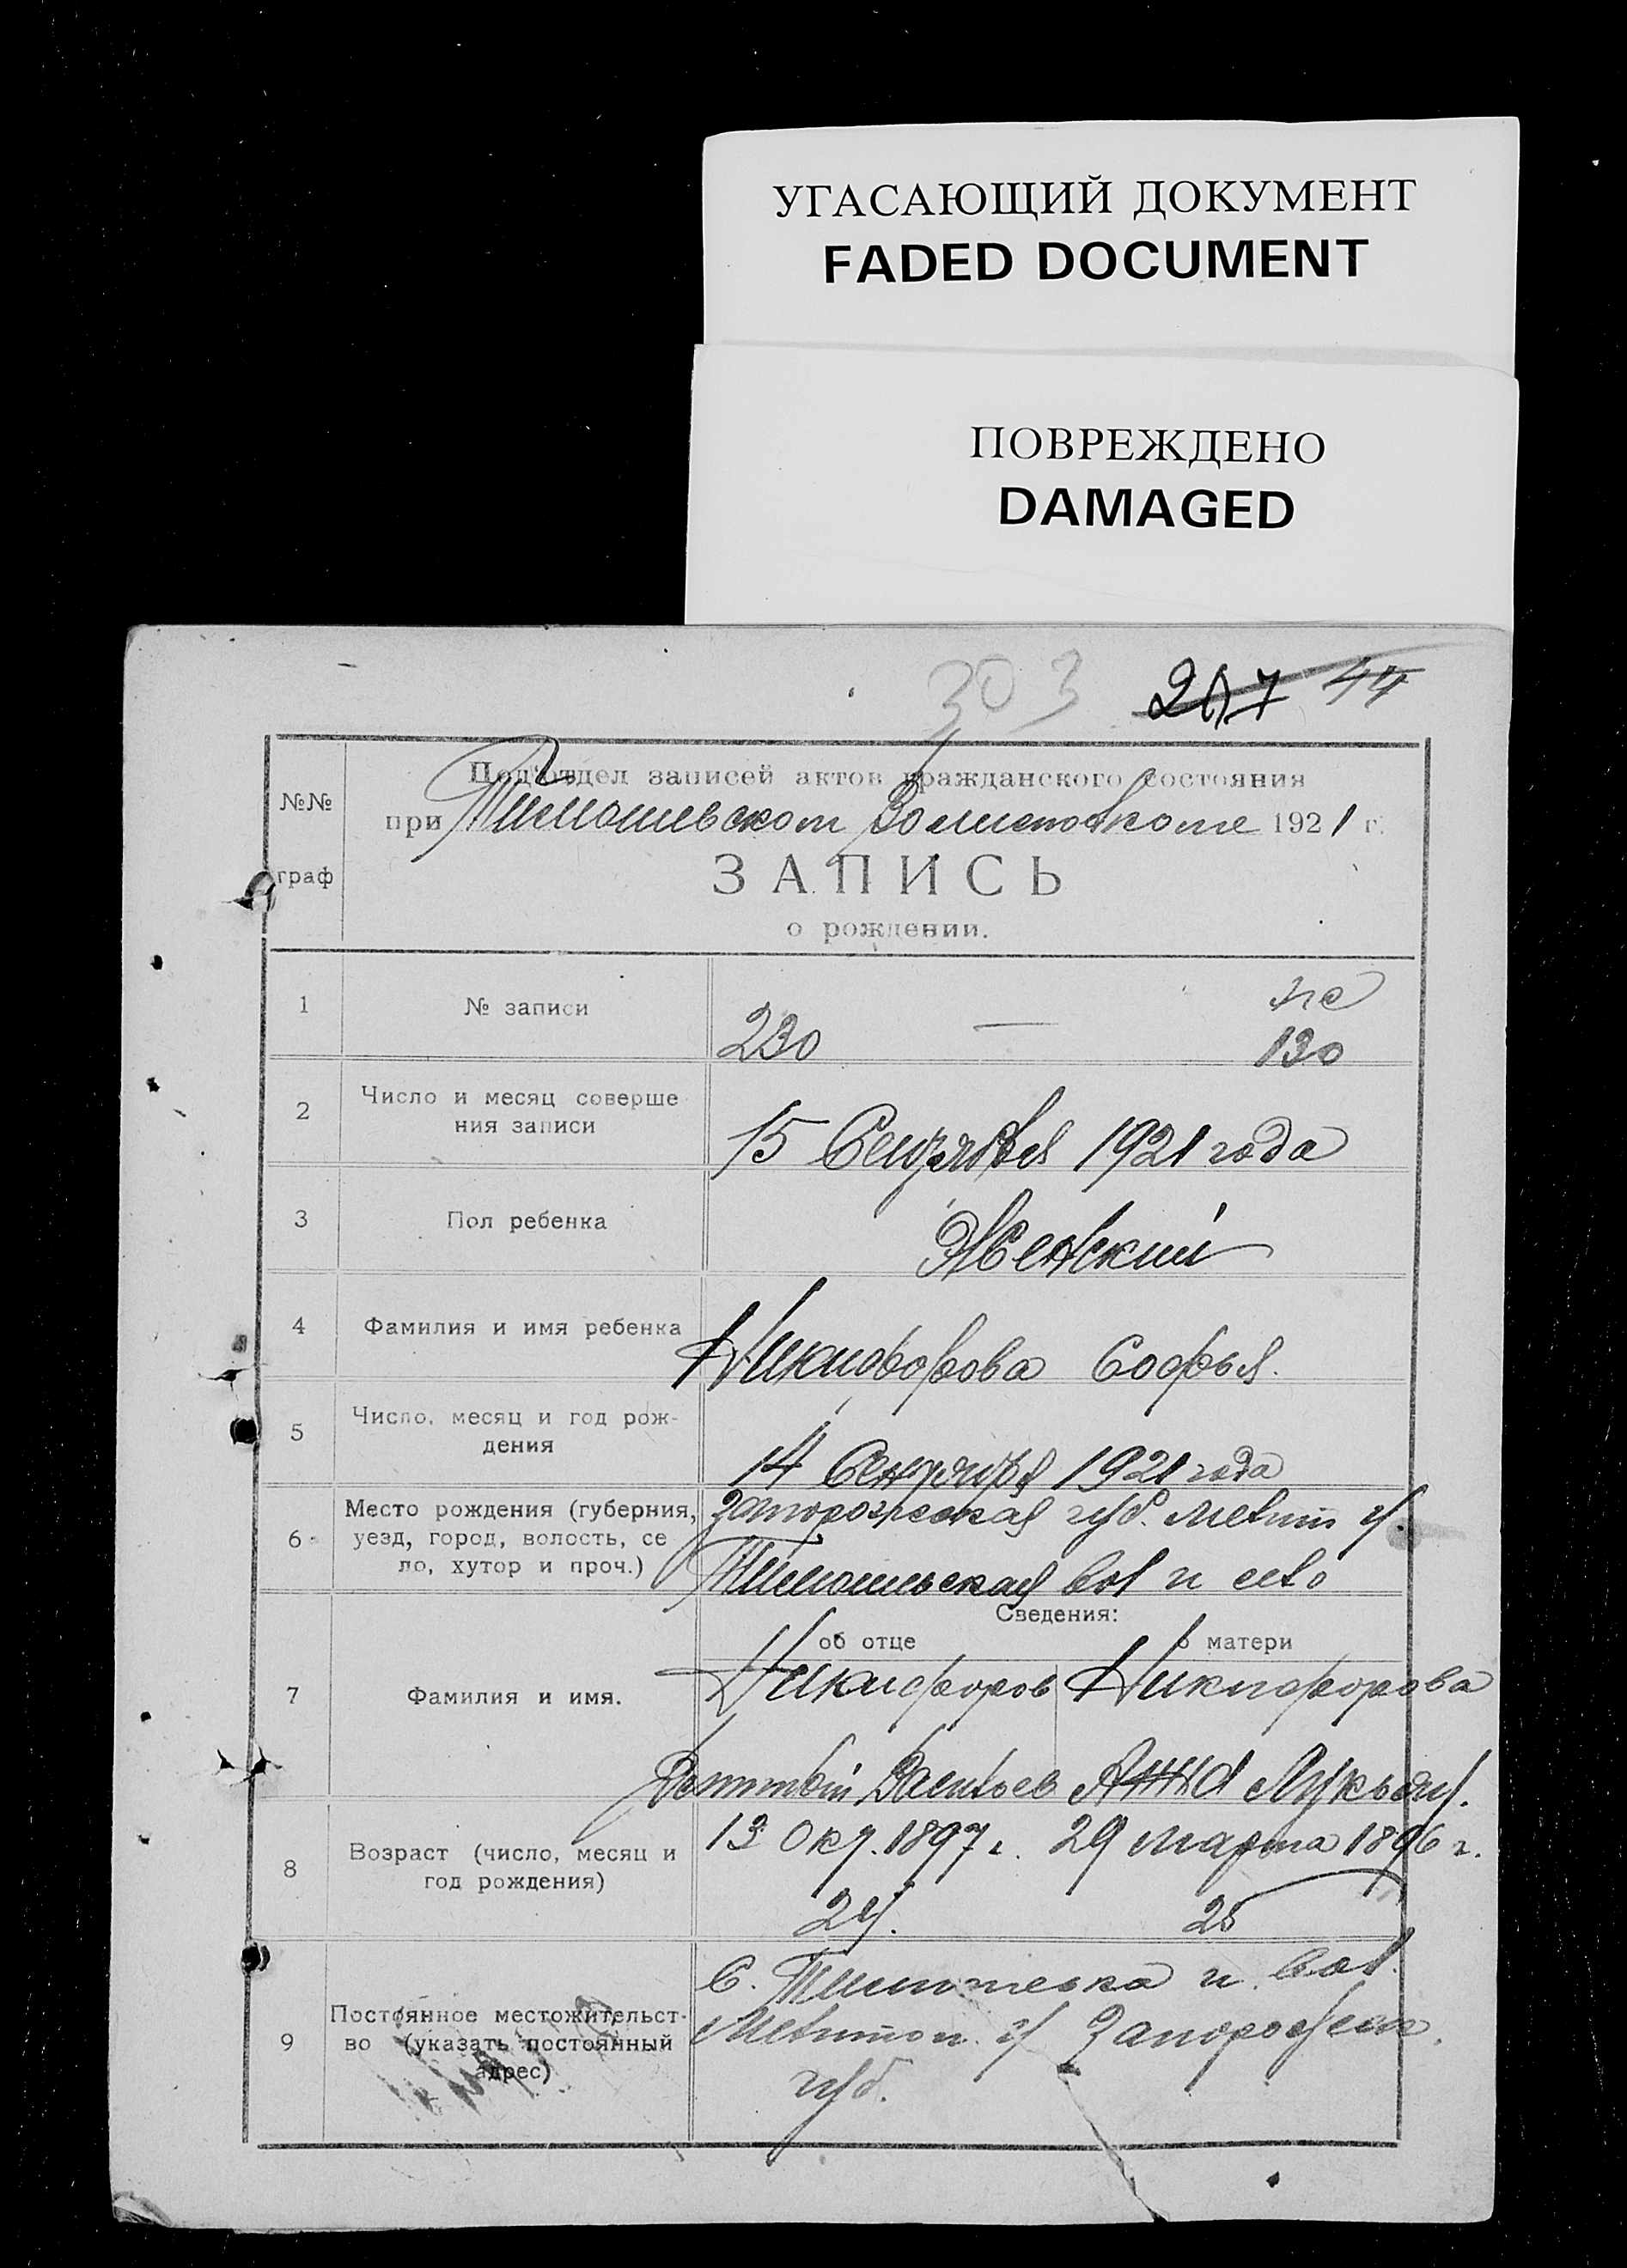 УГАСАЮЩИЙ ДОКУМЕНТ
FADED DOCUMENT
ПОВРЕЖДЕНО
DAMAGED
303 207 44
№№ граф
Под'отдел записей актов гражданского состояния
при Тимошевском 1921 г.
ЗАПИСЬ
о рождении.
1 № записи 230 — 130
2 Число и месяц соверше
ния записи
15 Сентября 1921 года
3 Пол ребенка Женский
4 Фамилия и имя ребенка Никифорова Софья.
5 Число, месяц и год рож-
дения
14 Сентября 1921 года
6 Место рождения (губерния,
уезд, город, волость, се
ло, хутор и проч.)
Запорожская губ. Мелит у.
Тимошевская вол и село
Сведения:
об отце о матери
7 Фамилия и имя.
Никифоров Никифорова
Анна Лукьян.
8 Возраст (число, месяц и
год рождения)
13 Окт. 1897 г. 29 марта 1896 г.
24. 25
9 Постоянное местожительст-
во (указать постоянный
адрес)
С. и вол.
Мелитоп. у Запорожск.
губ.